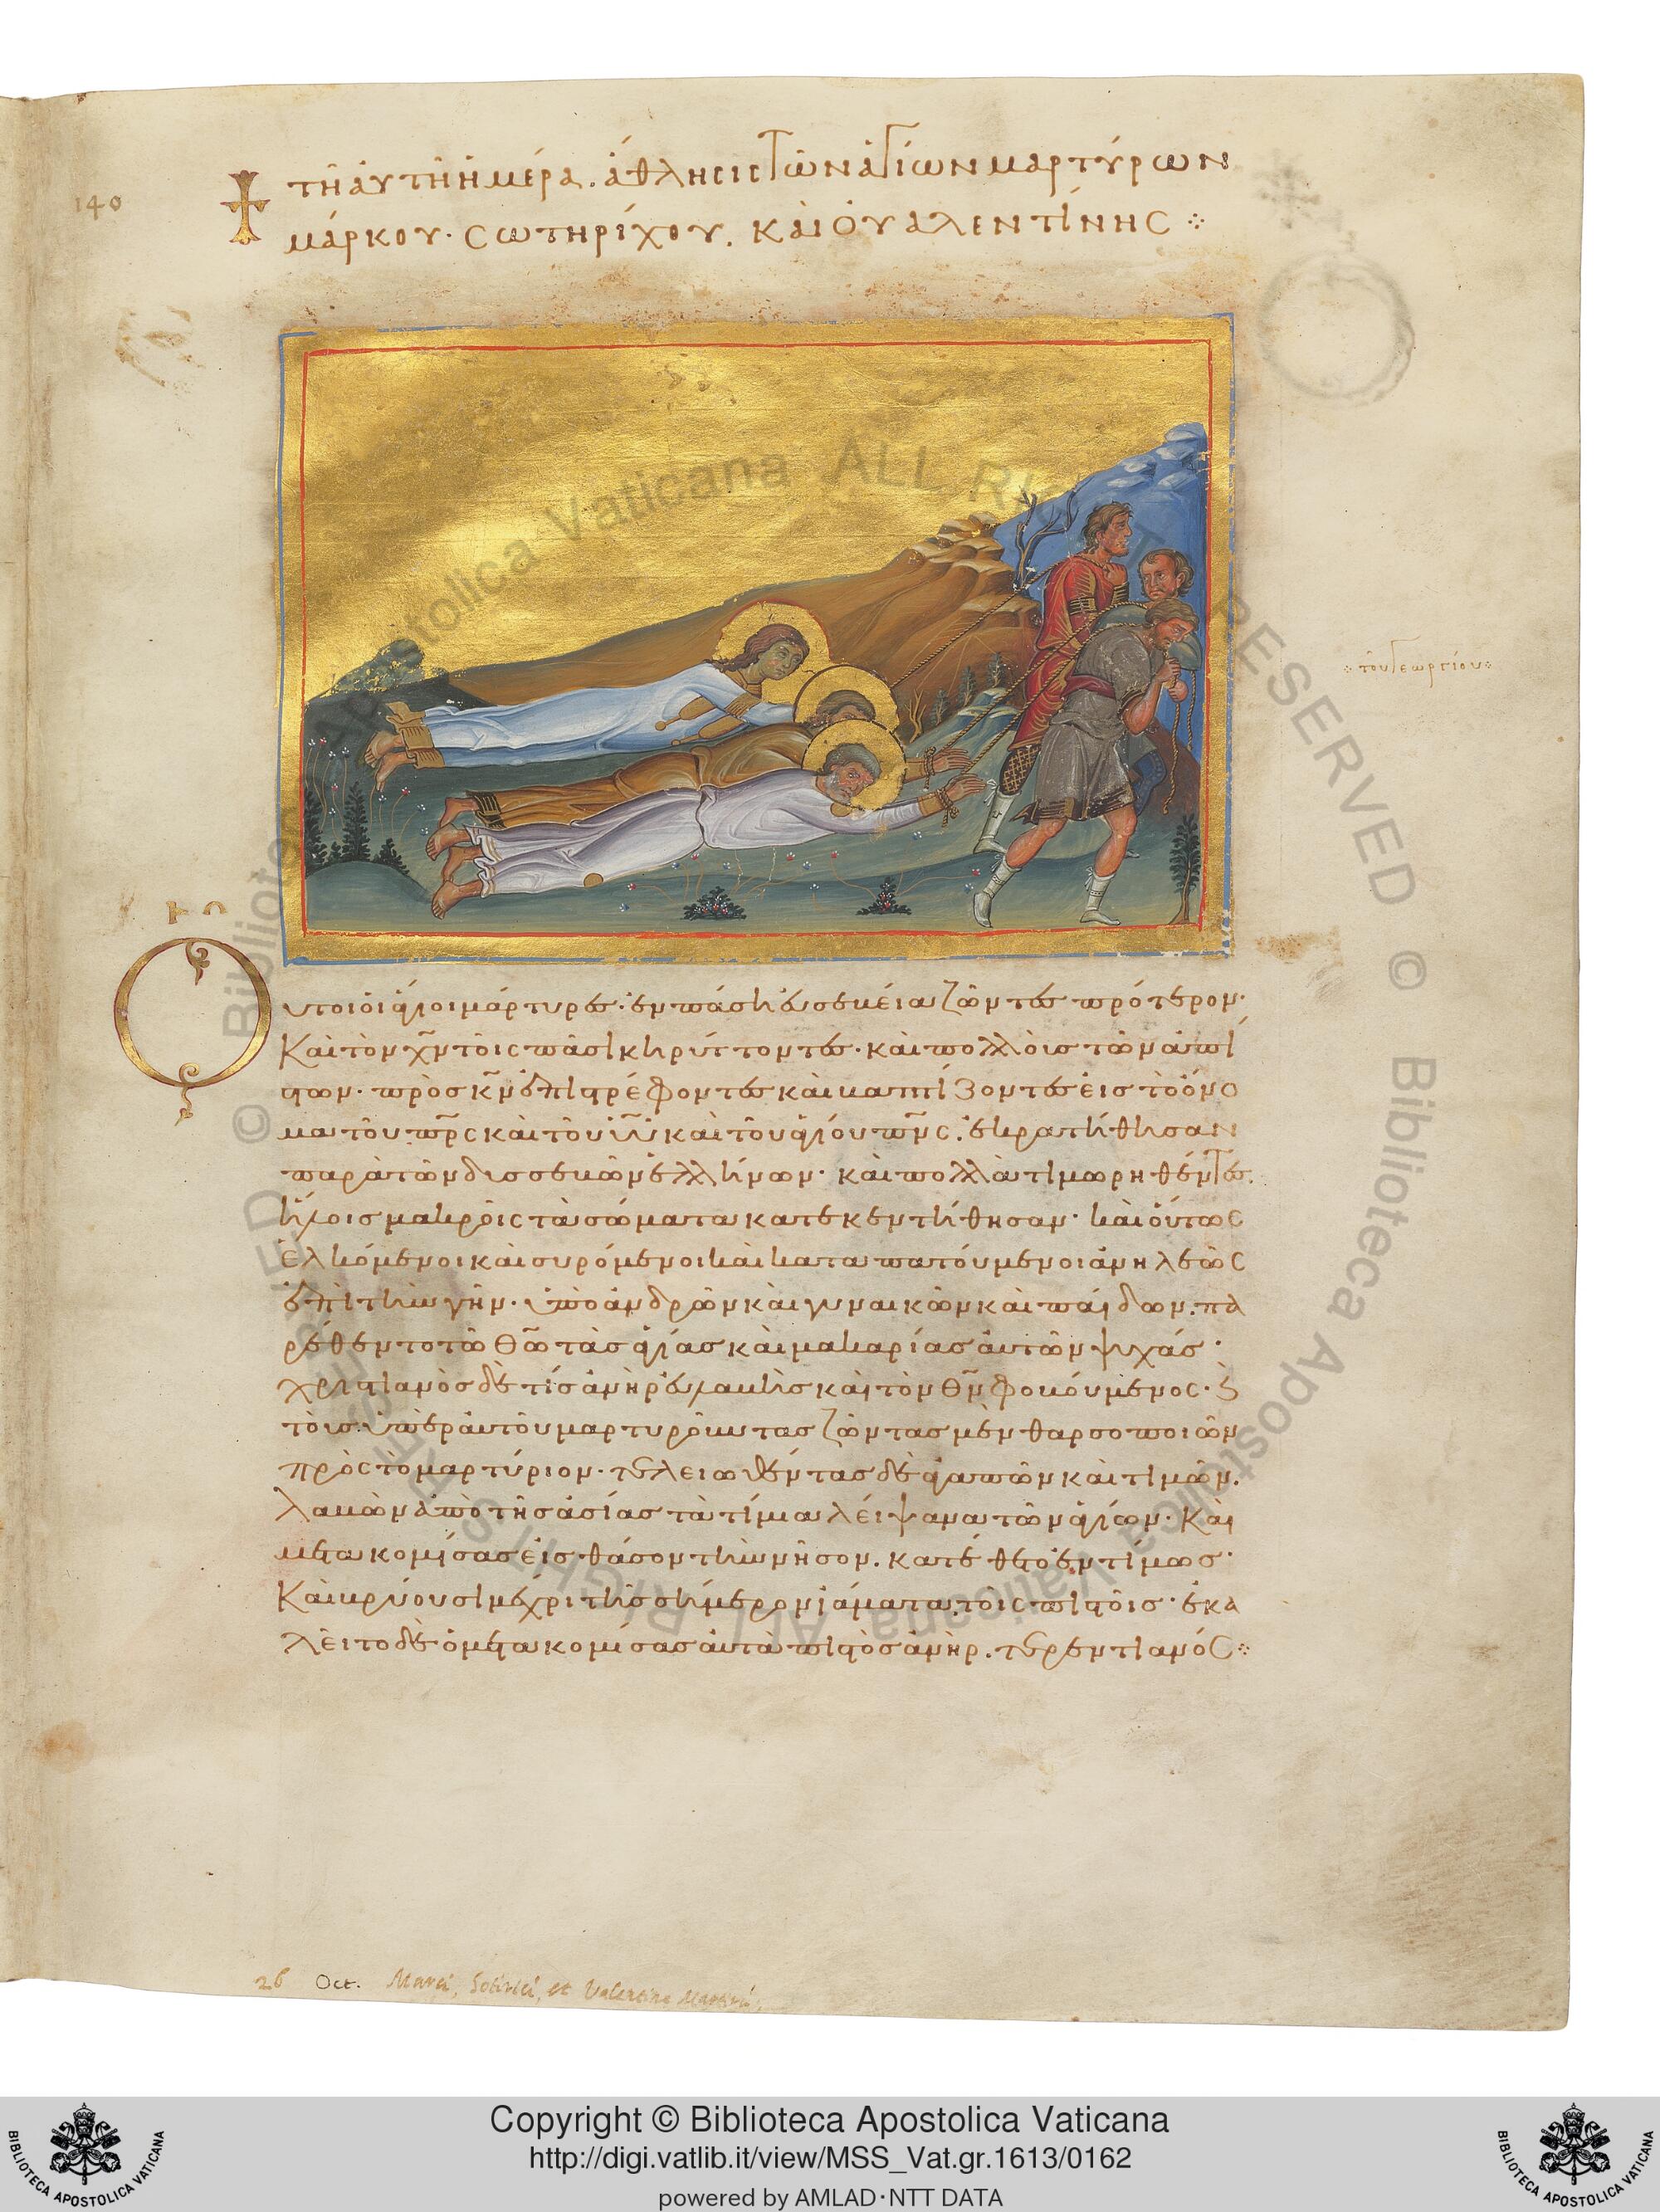 140
τῆ αὐτῆ ἡμέρα. ἄθλησις τῶν ἁγίων μαρτύρων
μάρκου· σωτηρίχου. καὶ οὐαλεντίνης ⁘
⁘ τοῦ γεωργίου ⁘
Οὗτοι οἱ ἅγιοι μάρτυρες· ἐν πάση εὐσεβεία ζῶντες πρότερον·
καὶ τὸν χ̅ν τοῖς πᾶσι κηρύττοντες· καὶ πολλοὺς τῶν ἀπί
στων· πρὸς κ̅ν ἐπιστρέφοντες καὶ βαπτίζοντες εἰς τὸ ὄνο
μα τοῦ π̅ρ̅ς καὶ τοῦ υ̅υ̅ καὶ τοῦ ἁγίου π̅ν̅ς. ἐκρατήθησαν
παρὰ τῶν δυσσεβῶν ἑλλήνων· καὶ πολλὰ τιμωρηθέντες.
ἥλοις μακροῖς τὰ σώματα κατεκεντήθησαν· καὶ οὕτως
ἑλκόμενοι καὶ συρόμενοι καὶ καταπατούμενοι ἀνηλεῶς
ἐπὶ τὴν γῆν· ὑπὸ ἀνδρῶν καὶ γυναικῶν καὶ παίδων. πα
ρέθεντο τῶ θ̅ω τὰς ἁγίας καὶ μακαρίας αὐτῶν ψυχάς·
χριστιανὸς δέ τίς ἀνὴρ εὐλαβὴς καὶ τὸν θ̅ν φοβούμενος· ϗ
τοὺς ὑπὲρ αὐτοῦ μαρτυροῦντας ζῶντας μὲν θαρσοποιῶν
πρὸς τὸ μαρτύριον· τελειωθέντας δὲ ἀγαπῶν καὶ τιμῶν.
λαβὼν ἀπὸ τῆς ἀσίας τὰ τίμια λείψανα τῶν ἁγίων· καὶ
μετακομίσας εἰς θάσον τὴν νῆσον. κατέθετο ἐντίμως·
καὶ βρύουσι μέχρι τῆς σήμερον ἰάματα τοῖς πιστοῖς· ἐκα
λεῖτο δὲ ὁ μετακομίσας αὐτὰ πιστὸς ἀνὴρ. τερεντιανός ⁘
26 Oct. Marci, Sotirici, et Valentine Martiri
© Biblioteca Apostolica Vaticana ALL RIGHTS RESERVED © Biblioteca Apostolica Vaticana ALL RIGHTS RESERVED
BIBLIOTECA APOSTOLICA VATICANA
Copyright © Biblioteca Apostolica Vaticana
http://digi.vatlib.it/view/MSS_Vat.gr.1613/0162
powered by AMLAD·NTT DATA
BIBLIOTECA APOSTOLICA VATICANA